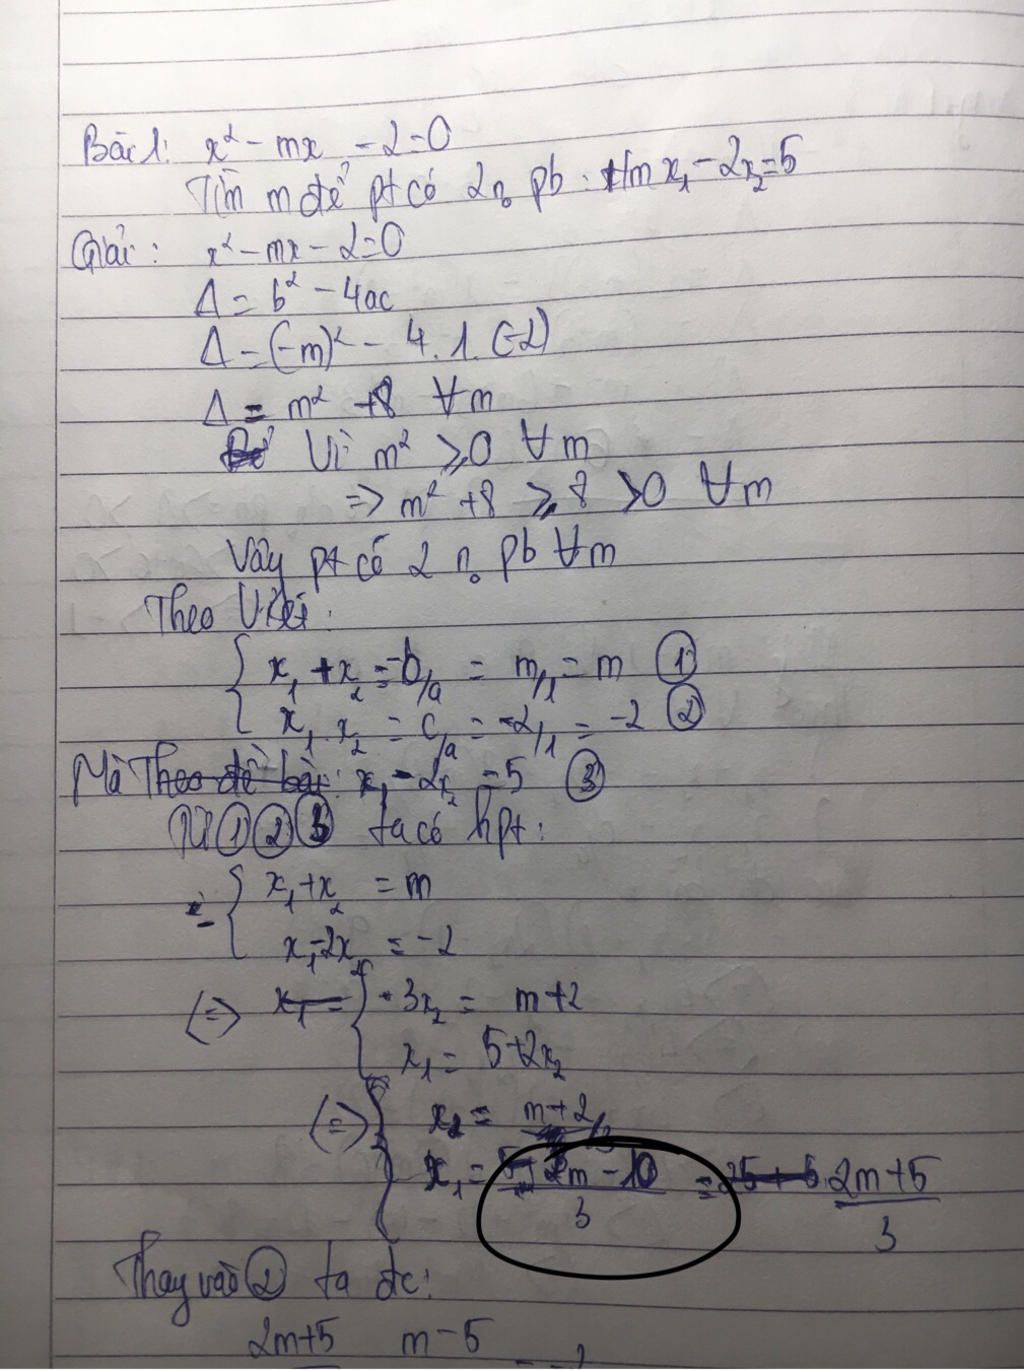 Bài 1: x² - mx - 2 = 0
Tìm m để pt có 2 n₀ pb: t/m x₁ - 2x₂ = 5
Giải: x² - mx - 2 = 0
Δ = b² - 4ac
Δ = (-m)² - 4.1.(-2)
Δ = m² + 8 ∀m
Vì m² ≥ 0 ∀m
=> m² + 8 ≥ 8 > 0 ∀m
Vậy pt có 2 n₀ pb ∀m
Theo Viét:
{ x₁ + x₂ = -b/a = m/1 = m ①
x₁ . x₂ = c/a = -2/1 = -2 ②
Mà Theo đề bài: x₁ - 2x₂ = 5 ③
Từ ① ② ③ ta có hpt:
{ x₁ + x₂ = m
x₁ - 2x₂ = -2
(=>) x₁ = { 3x₂ = m + 2
x₁ = 5 + 2x₂
(=>) { x₂ = m + 2 / 3
x₁ = 2m - 10 / 3 = 25 + 5 2m + 5 / 3
Thay vào ② ta đc:
2m + 5 m - 5